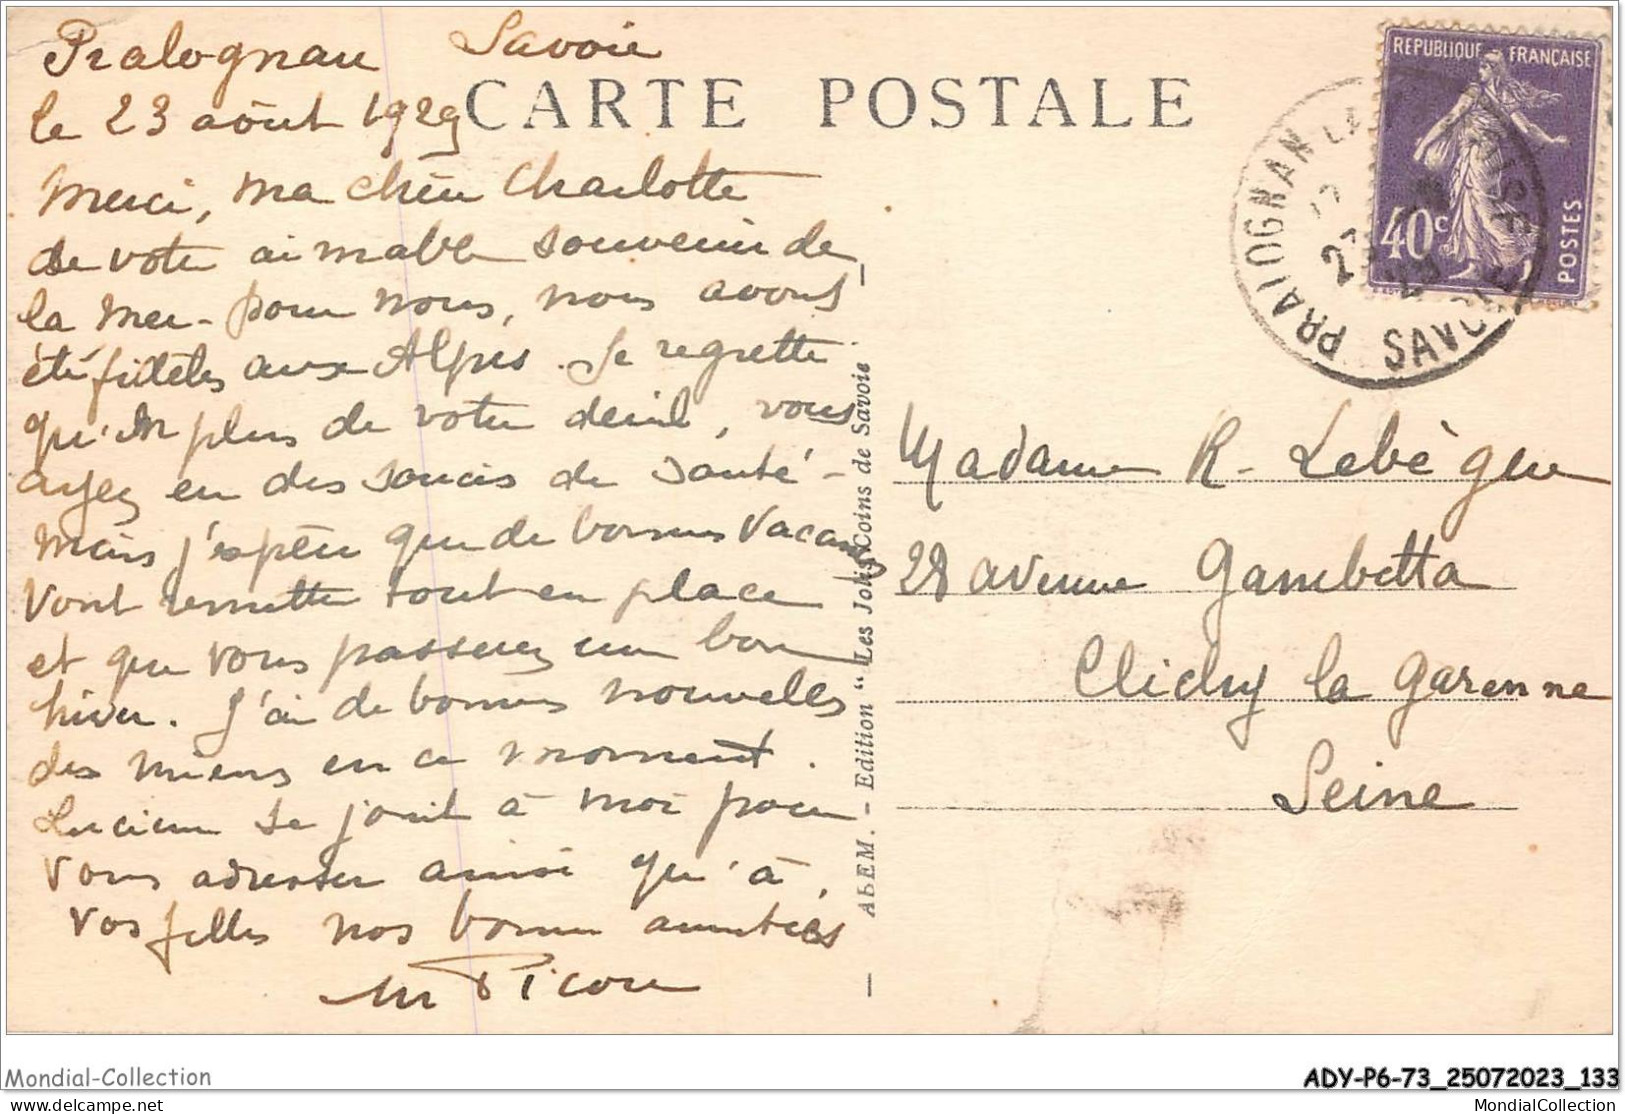 Pralognan Savoie
le 23 août 1929
CARTE POSTALE
Merci, ma chère Charlotte
de votre aimable souvenir de
la mer - pour nous, nous avons
été fidèles aux Alpes. Je regrette
qu'en plus de votre deuil, vous
ayez eu des soucis de santé -
Mais j'espère que de bonnes vacances
vont remettre tout en place
et que vous passerez un bon
hiver. J'ai de bonnes nouvelles
des miens en ce moment.
Lucien se joint à moi pour
vous adresser ainsi qu'à
vos filles nos bonnes amitiés
M Picon
AbEM. - Edition "Les Jolis Coins de Savoie
REPUBLIQUE FRANÇAISE
40c
POSTES
PRALOGNAN LA
SAVOIE
Madame R. Lebègue
28 avenue Gambetta
Clichy la Garenne
Seine
Mondial-Collection
ADY-P6-73_25072023_133
www.delcampe.net
MondialCollection